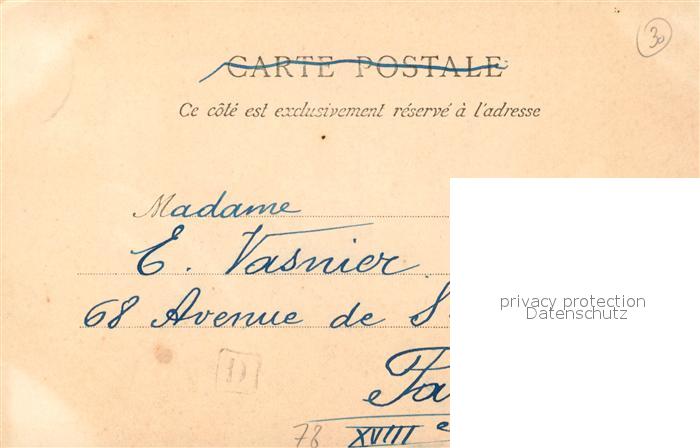 30
CARTE POSTALE
Ce côté est exclusivement réservé à l'adresse
Madame
E. Vasnier
68 Avenue de S
privacy protection
Datenschutz
Pa
D
78 XVIII e